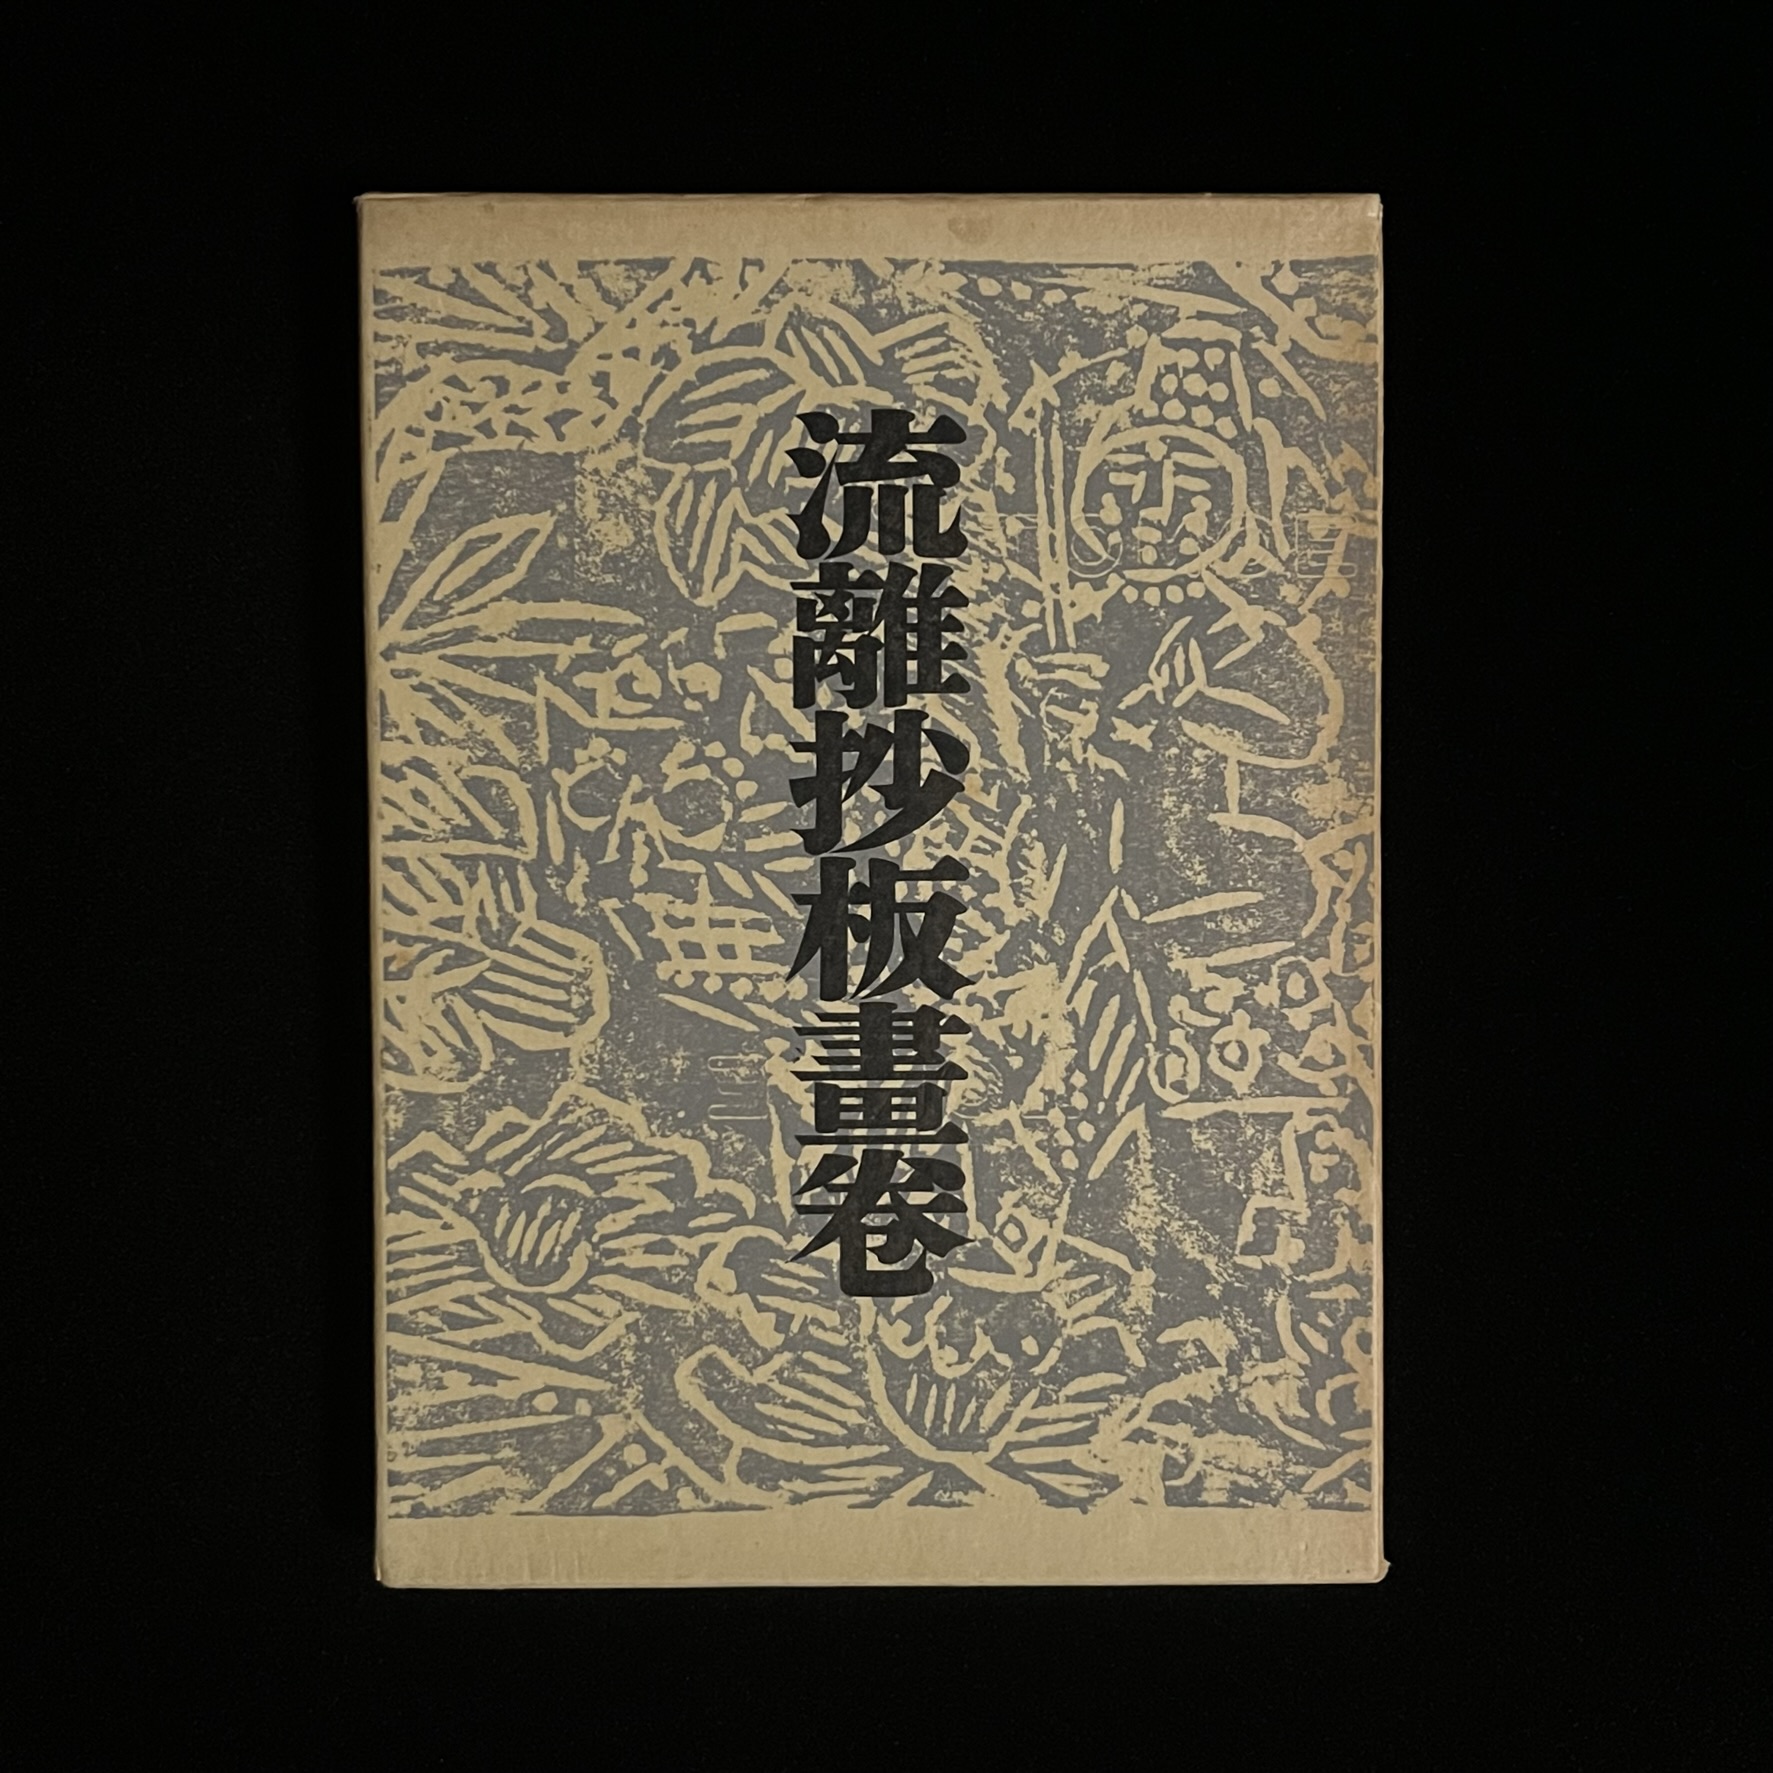 流離抄板畫卷